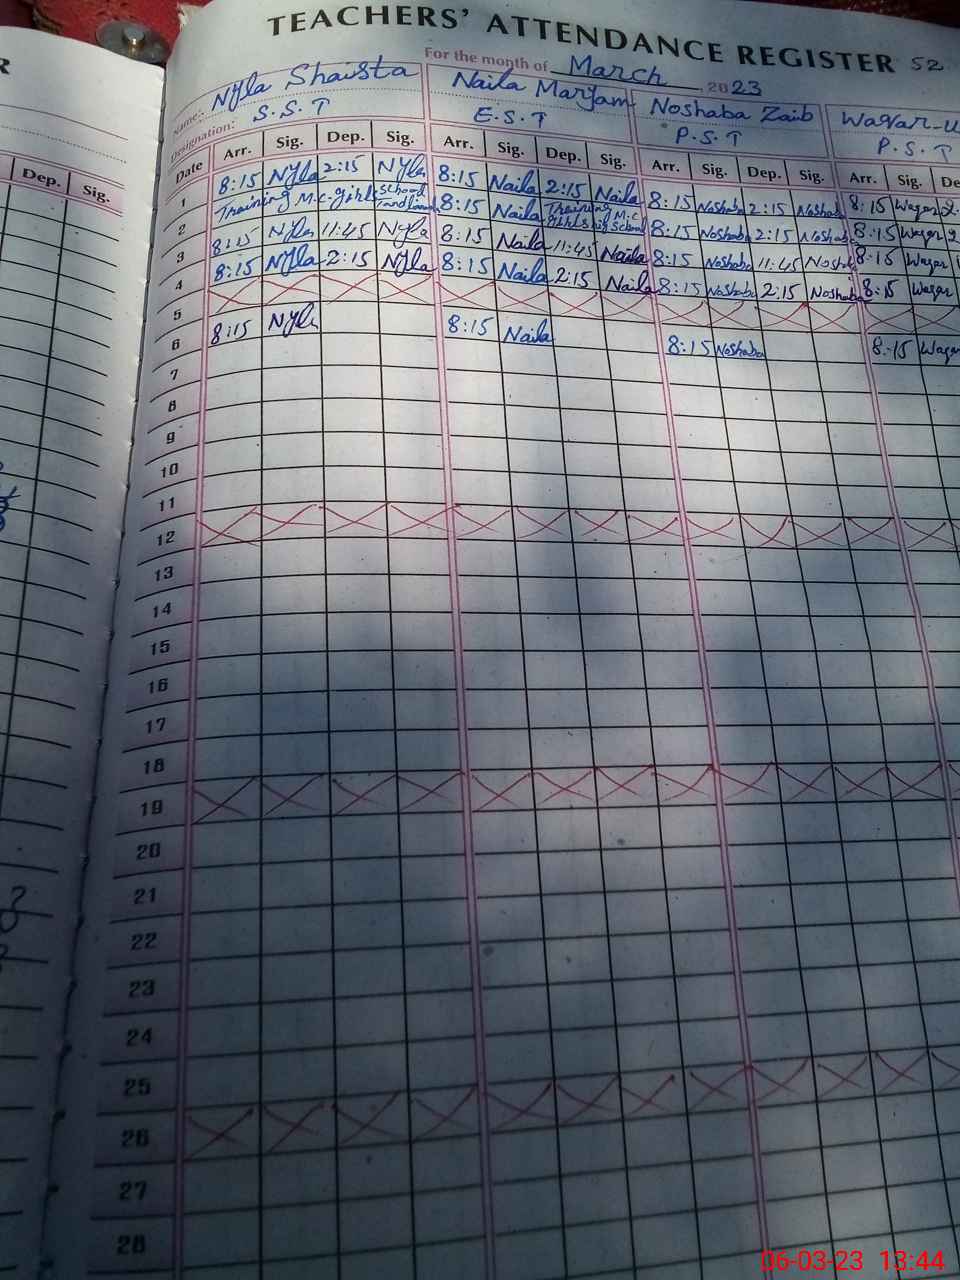 R
TEACHERS' ATTENDANCE REGISTER 52
For the month of March 2023
Name:- Nyla Shaista Naila Maryam Noshaba Zaib Waqar-u
Designation: S.S.T E.S.T P.S.T P.S.T
Dep. Sig.
Date Arr. Sig. Dep. Sig. Arr. Sig. Dep. Sig. Arr. Sig. Dep. Sig. Arr. Sig. De
1 8:15 Nyla 2:15 Nyla 8:15 Naila 2:15 Naila 8:15 Noshaba 2:15 Noshab 8:15 Waqar 2
2 Training M.C. girls school 8:15 Naila Training M.C girls school 8:15 Noshaba 2:15 Noshab 8:15 Waqar 2
3 8:15 Nyla 11:45 Nyla 8:15 Naila 11:45 Naila 8:15 Noshaba 11:45 Nosh 8:15 Waqar
4 8:15 Nyla 2:15 Nyla 8:15 Naila 2:15 Naila 8:15 Noshaba 2:15 Noshaba 8:15 Waqar
5
6 8:15 Nyla 8:15 Naila 8:15 Noshaba 8:15 Waqar
7
8
9
10
11
12
13
14
15
16
17
18
19
20
21
22
23
24
25
26
27
28
06-03-23 13:44